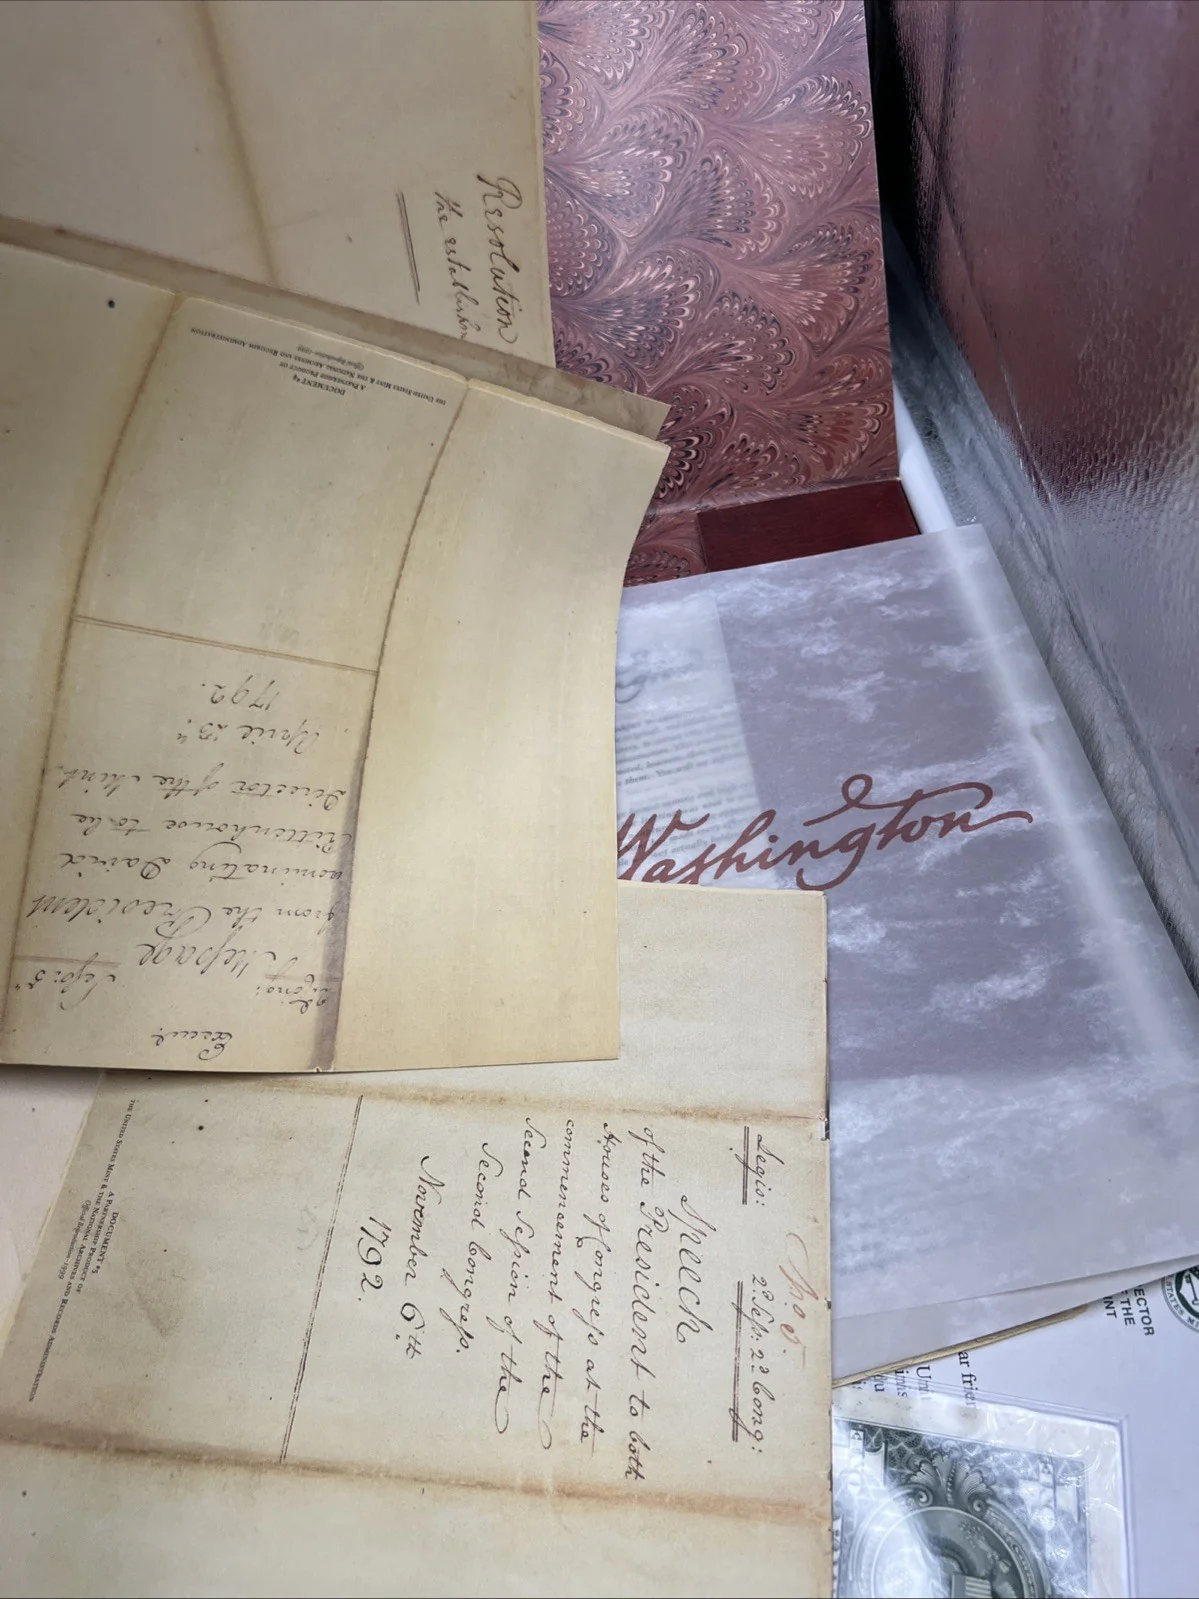 Resolution
the establishm
DOCUMENT #4
A PARTNERSHIP PRODUCT OF
THE UNITED STATES MINT & THE NATIONAL ARCHIVES AND RECORDS ADMINISTRATION
Official Reproduction · 1999
Execut.
2d Cong: Sess: 5th
Message
from the President
nominating David
Rittenhouse to be
Director of the Mint.
April 13th
1792.
Washington
No 5.
Legis: 2d Sess: 2d Cong:
Speech
of the President to both
Houses of Congress at the
commencement of the
Second Session of the
Second Congress.
November 6th
1792.
DOCUMENT #5
A PARTNERSHIP PRODUCT OF
THE UNITED STATES MINT & THE NATIONAL ARCHIVES AND RECORDS ADMINISTRATION
Official Reproduction · 1999
ECTOR
THE
INT
STATES
ar frien
Uni